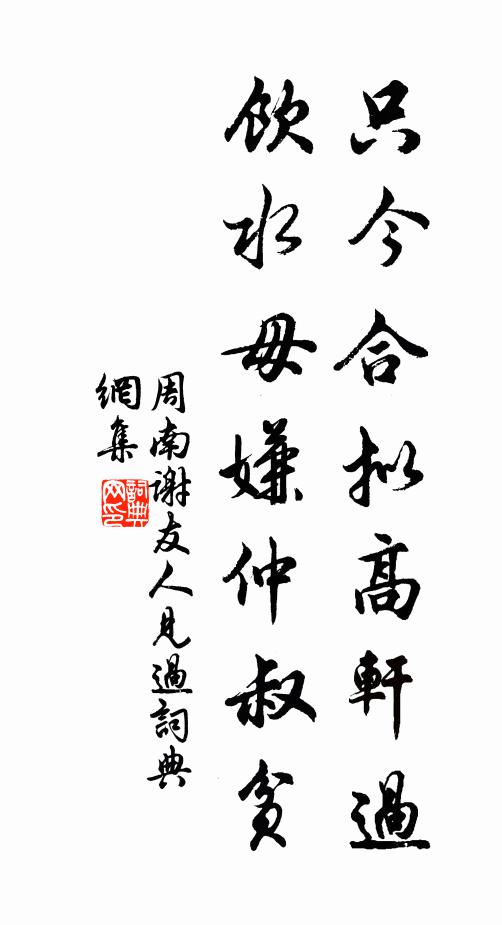 只今合拟高軒過
飲水毋嫌仲叔貧
周南謝友人見過詞典
網集
詞典
网印